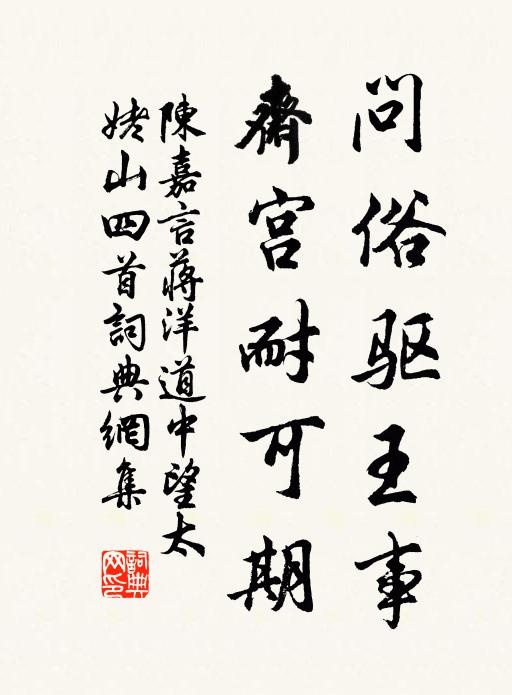 问俗驱王事
齋宫耐可期
陳嘉言蔣洋道中望太
姥山四首詞典網集
詞典
网印